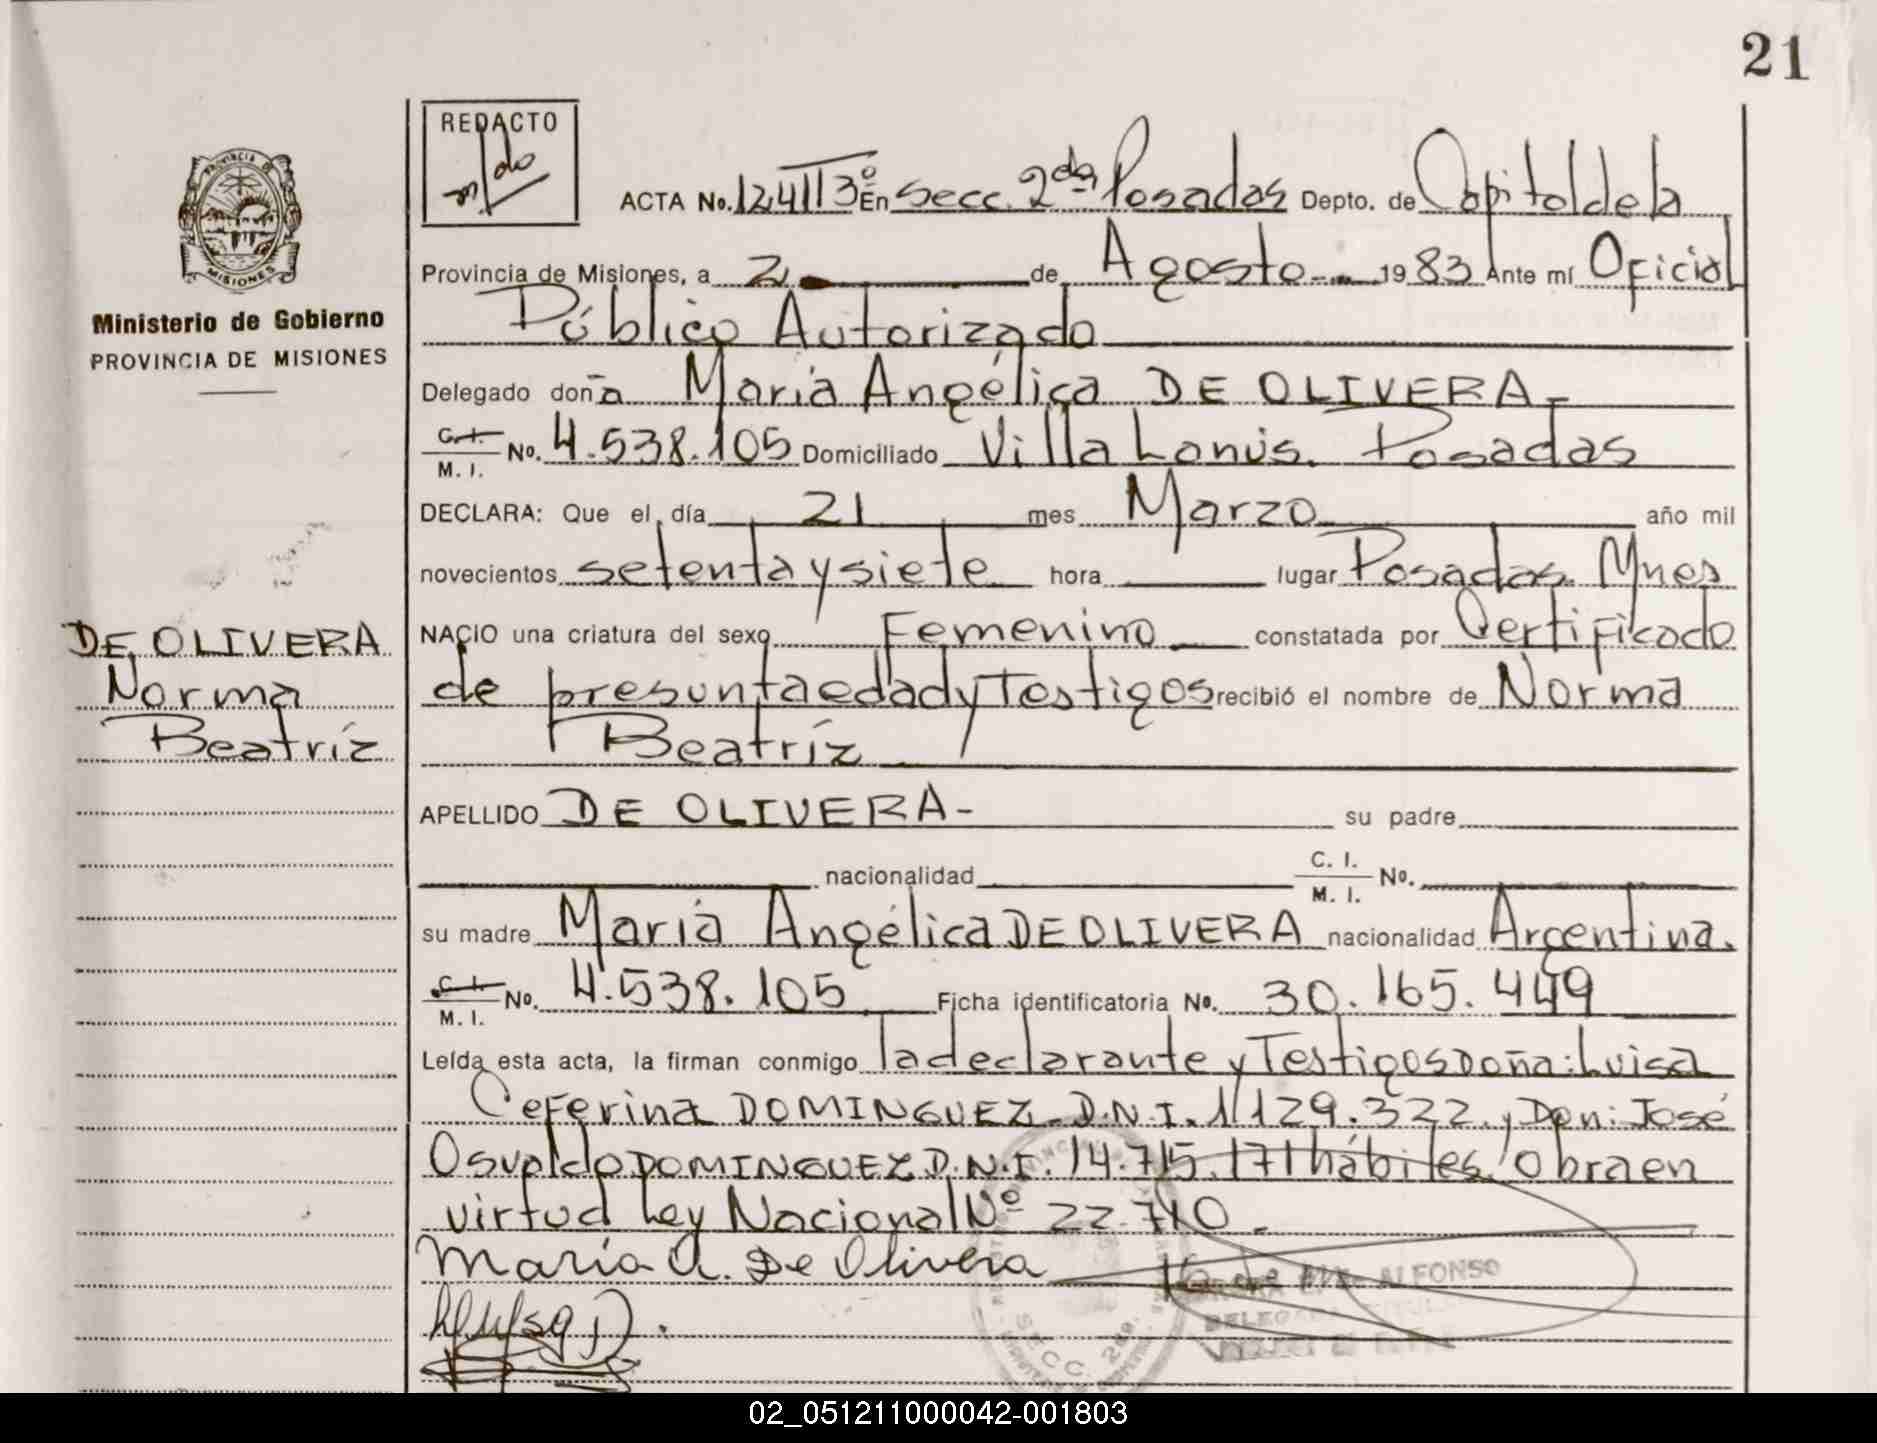 21
REDACTO
ACTA No. 124II3º En Secc. 2da Posadas Depto. de Capital de la
Provincia de Misiones, a 2 de Agosto 1983 Ante mí Oficial
Público Autorizado
Ministerio de Gobierno
PROVINCIA DE MISIONES
Delegado doña María Angélica DE OLIVERA-
C. I. M. I. No. 4.538.105 Domiciliado Villa Lanús. Posadas
DECLARA: Que el día 21 mes Marzo año mil
novecientos setenta y siete hora lugar Posadas Mnes
NACIO una criatura del sexo Femenino constatada por Certificado
DE OLIVERA
Norma
Beatríz
de presunta edad y Testigos recibió el nombre de Norma
Beatríz
APELLIDO DE OLIVERA- su padre
nacionalidad C. I. M. I. No.
su madre María Angélica DE OLIVERA nacionalidad Argentina.
C. I. M. I. No. 4.538.105 Ficha identificatoria No. 30.165.449
Leída esta acta, la firman conmigo la declarante y Testigos Doña: Luisa
Ceferina DOMINGUEZ D.N.I. 1.129.322. y Don: José
Osvaldo DOMINGUEZ D.N.I. 14.715.171 hábiles. Obra en
virtud Ley Nacional Nº 22.710.-
María A. De Olivera
ALFONSO
SECC. 2da.
02_051211000042-001803